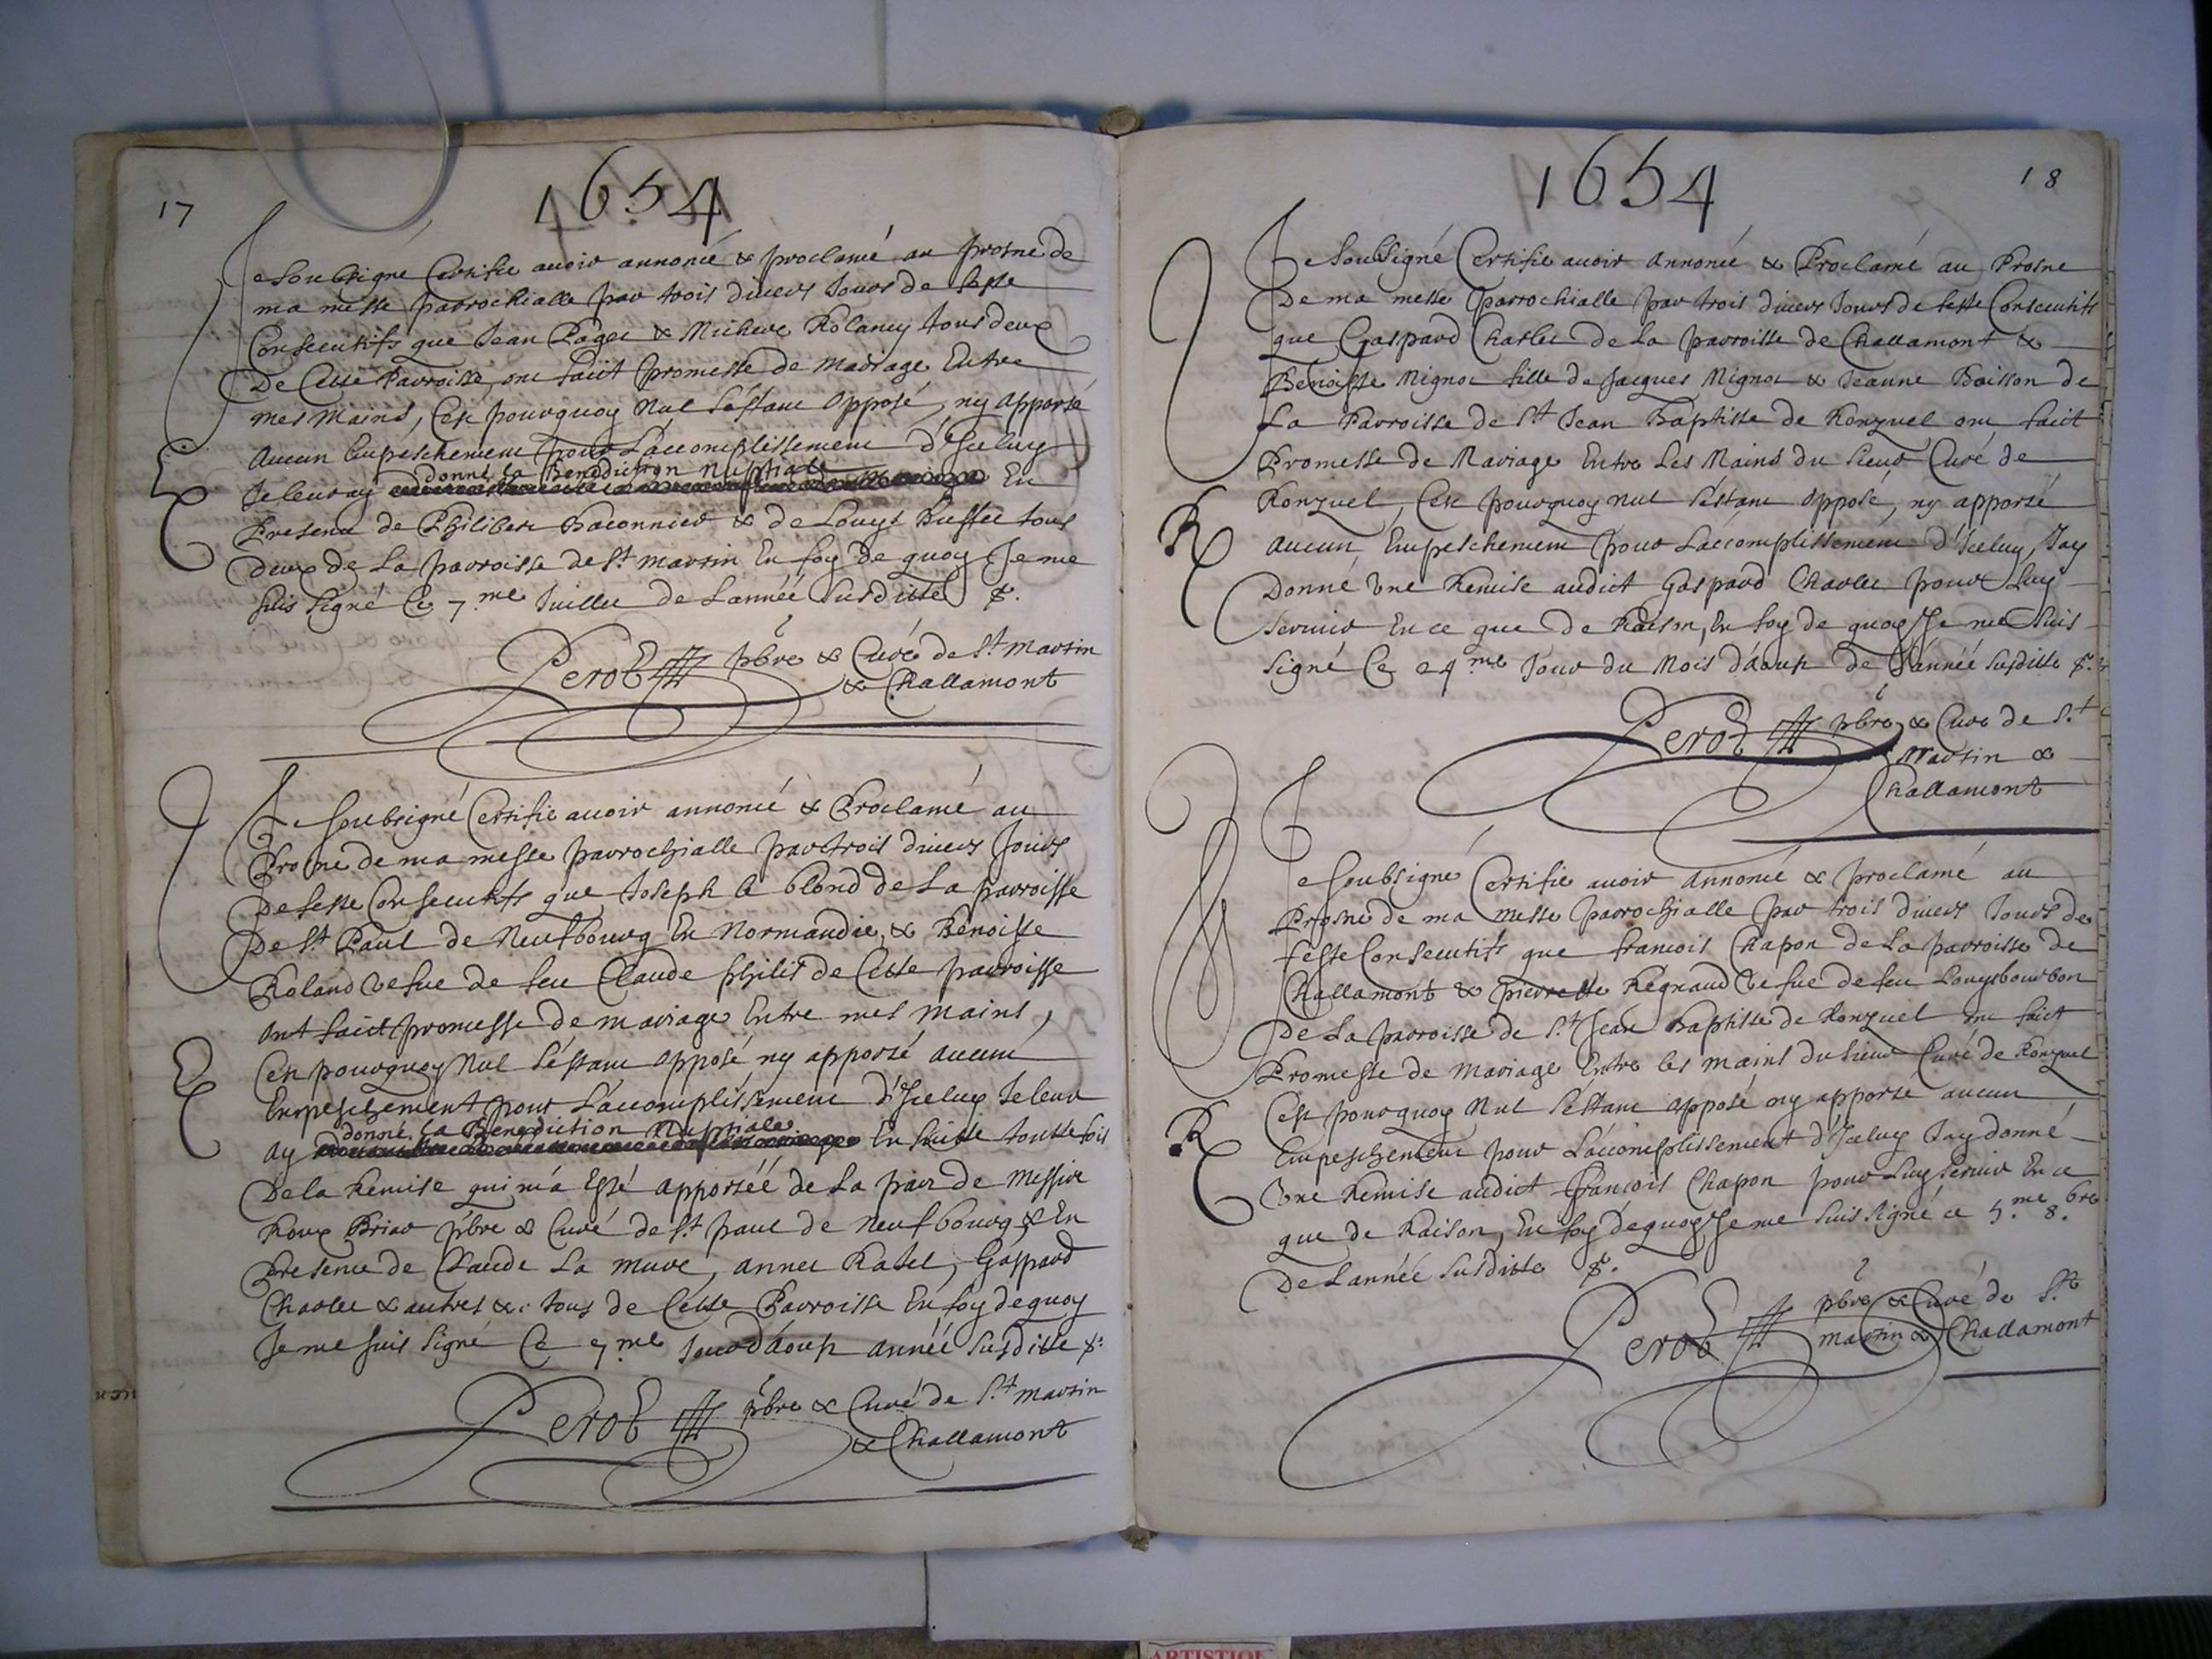 17
1654
Je Soubsigné Certifie avoir annoncé & proclamé au prosne de
ma messe parrochialle par trois divers Jours de feste
Consecutifs que Jean Pager & Micheve Rolancy tous deux
De Cette Parroisse, ont faict promesse de mariage Entre
mes mains, C'est pourquoy Nul s'éstant opposé, ny apporté
Aucun Empéschement pour L'accomplissement d'Iceluy
donné la Benediction Nuptiale
Je leur ay En
Presence de Philibert Baconnier & de Louys Buffet tous
deux de La parroisse de St martin En foy de quoy Je me
suis signé Ce 7.me Juillet de L'année Susditte &.
Perob pbre & Curé de St martin
& Challamont
Je soubsigné Certifie avoir annoncé & Proclamé au
Prosne de ma messe parrochialle par trois divers Jours
De feste Consecutifs que Joseph le blond de La parroisse
De St Paul de Neufbourg En Normandie, & Benoiste
Roland vefve de feu Claude philis de Cette parroisse
ont faict promesse de mariage Entre mes mains,
C'est pourquoy Nul s'éstant opposé ny apporté aucun
Empeschement pour L'accomplissement d'Iceluy Je leur
donné la Benediction Nuptiale
ay En suitte touttefois
De la Remise qui m'a Esté apportéé de La part de Messire
Roux Briar pbre & Curé de St paul de Neufbourg & En
Presence de Claude La mure, annet Ratel, Gaspard
Charlet & autres &c. tous de Cette Parroisse En foy de quoy
Je me suis signé Ce 9.me Jour d'aoust année Susditte &.
Perob pbre & Curé de St martin
& Challamont
18
1654
Je Soubsigné Certifie avoir annoncé & Proclamé au Prosne
De ma messe parrochialle par trois divers Jours de feste Consecutifs
que Gaspard Charlet de La parroisse de Challamont &
Benoiste Mignot fille de Jacques Mignot & Jeanne Boisson de
La Parroisse de St Jean Baptiste de Ronzuel ont faict
Promesse de Mariage Entre Les Mains du sieur Curé de
Ronzuel, C'est pourquoy nul s'éstant opposé, ny apporté
aucun Empeschement pour L'accomplissement d'Iceluy, J'ay
Donné Une Remise audict Gaspard Charlet pour Luy
servir En ce que de Raison, En foy de quoy Je me suis
signé Ce 24.me Jour du Mois d'aoust de L'année Susditte &.
Perob pbre & Curé de St
Martin &
Challamont
Je soubsigné Certifie avoir annoncé & proclamé au
Prosne de ma messe parrochialle par trois divers Jours de
feste Consecutifs que francois Chapon de La parroisse de
Challamont & pierrette Regnaud vefve de feu Louys bourbon
De La parroisse de St Jean Baptiste de Ronzuel ont faict
Promesse de Mariage Entre les mains du sieur Curé de Ronzuel
C'est pourquoy Nul s'éstant opposé ny apporté aucun
Empeschement pour L'accomplissement d'Iceluy J'ay donné
Une Remise audict francois Chapon pour Luy servir En ce
que de Raison, En foy de quoy Je me suis signé ce 5.me 8.bre
De L'année Susditte &.
Perob pbre & Curé de St
martin & Challamont
ARTISTIQUE